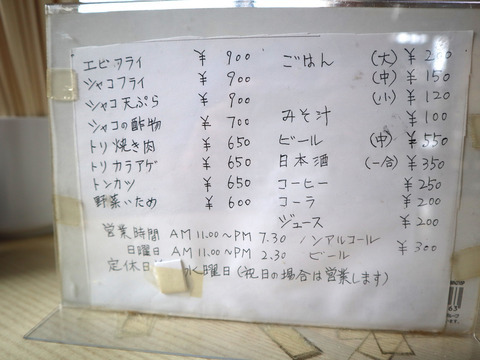 エビフライ ￥900
シャコフライ ￥900
シャコ天ぷら ￥900
シャコの酢物 ￥700
トリ焼き肉 ￥650
トリカラアゲ ￥650
トンカツ ￥650
野菜いため ￥600
ごはん (大) ￥200
(中) ￥150
(小) ￥120
みそ汁 ￥100
ビール (中) ￥550
日本酒 (一合) ￥350
コーヒー ￥250
コーラ ￥200
ジュース ￥200
ノンアルコール
ビール ￥300
営業時間 AM 11.00～PM 7.30
日曜日 AM 11.00～PM 2.30
定休日 水曜日(祝日の場合は営業します)